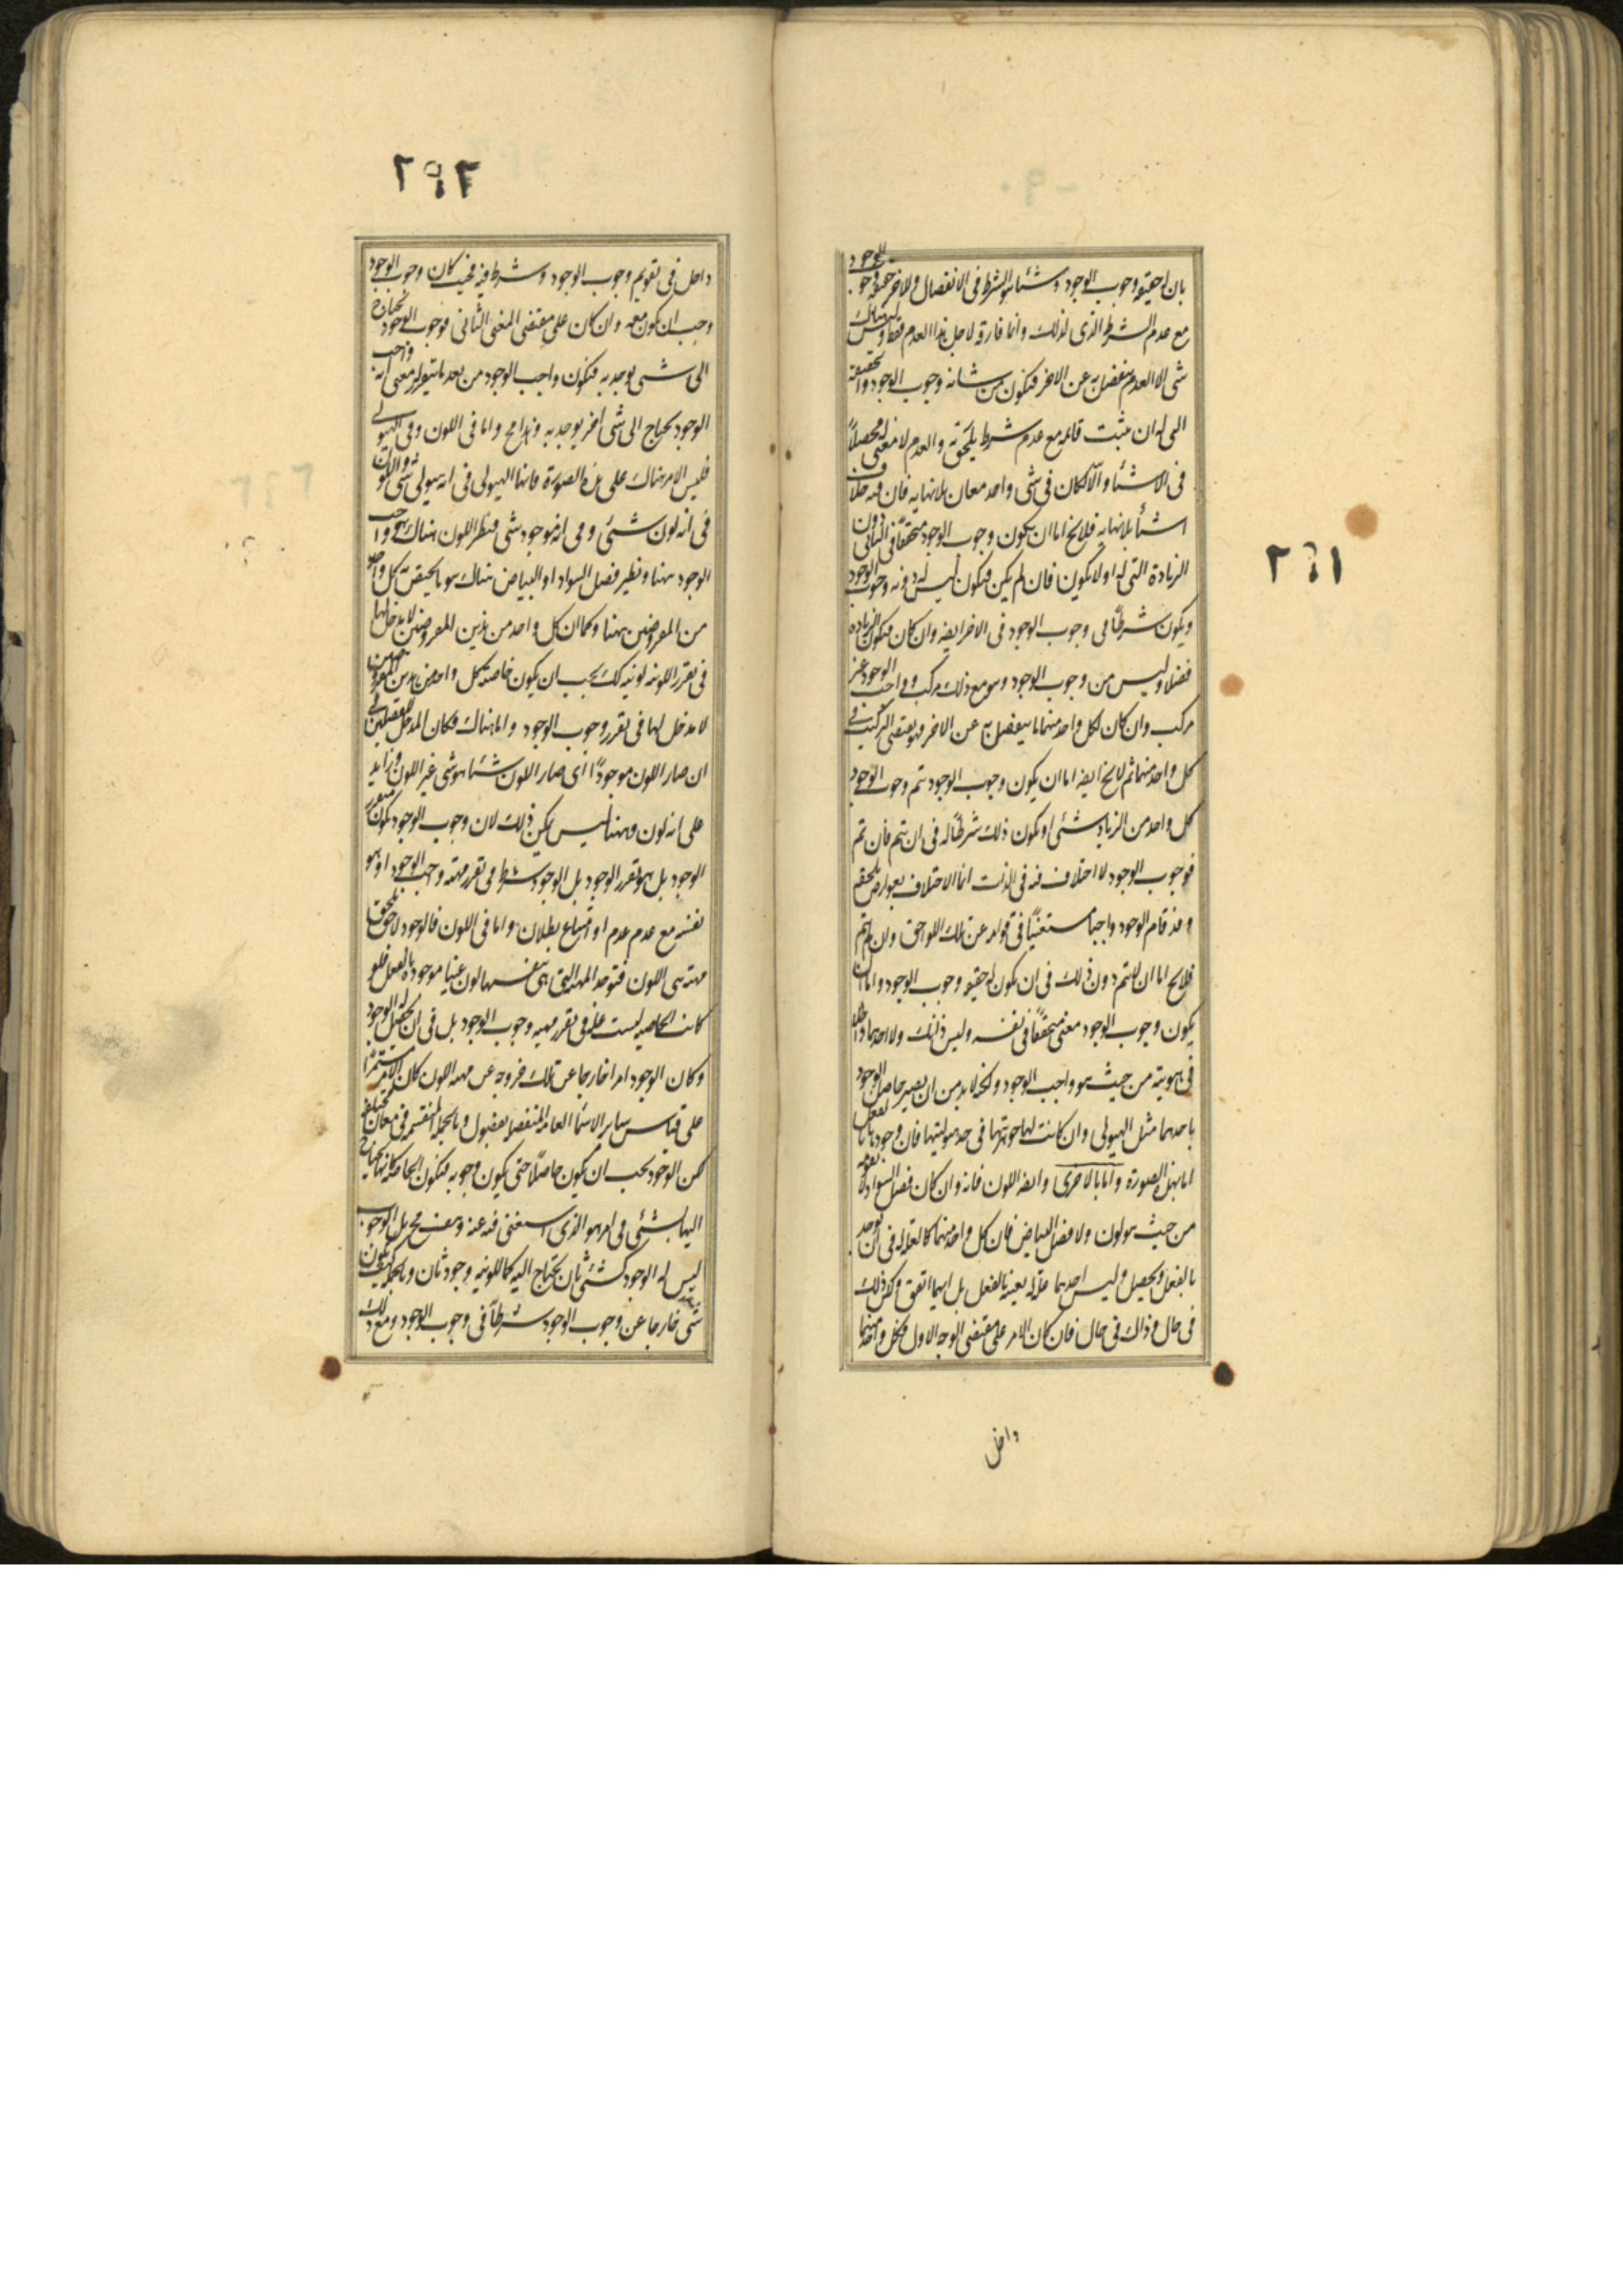 ٢٩١
بان له حقيقة وجوب الوجود وشيئا هو الشرط فى الانفصال وللاخر حقيقة وجوب الوجود
مع عدم الشرط الذى لذلك وانما فارقه لاجل هذا العدم فقط وليس هناك
شى الا العدم ينفصل به عن الاخر فيكون من شانه وجوب الوجود والحقيقة
التى له ان يثبت قائمه مع عدم شرط يلحقه والعدم لا معنى له محصلاً
فى الاشيا والا لكان فى شى واحد معان بلا نهايه فان فيه خلاف
اشيأ بلا نهايه فلايخ اما ان يكون وجوب الوجود متحققاً فى الثانى دون
الزيادة التى له او لا يكون فان لم يكن فيكون ليس له دونه وجوب الوجود
ويكون شرطاً فى وجوب الوجود فى الاخر ايضه وان كان فيكون الزيادة
فضلا وليس من وجوب الوجود وهو مع ذلك مركب وواجب الوجود غير
مركب وان كان لكل واحد منهما ما ينفصل به عن الاخر فهو يقتضى التركيب فى
كل واحد منهما ثم لايخ ايضه اما ان يكون وجوب الوجود تم وجوب الوجود
كل واحد من الزيادتين او يكون ذلك شرطاً له فى ان يتم فان تم
فوجوب الوجود لا اختلاف فيه فى الذات انما الاختلاف بعوارض تلحقه
وقد قام الوجود واجبا مستغنيًا فى قوامه عن تلك اللواحق وان لم يتم
فلايخ اما ان لا يتم دون ذلك فى ان يكون له حقيقة وجوب الوجود واما ان
يكون وجوب الوجود معنى متحققاً فى نفسه وليس ذانك ولا احدهما داخلا
فى هويته من حيث هو واجب الوجود ولكنه لابد من ان يصير حاصل الوجود
باحدهما مثل الهيولى وان كانت لها جوهريتها فى حد هيوليتها فان وجودها بالفعل
اما بهذه الصورة واما بالاخرى وايضه اللون فانه وان كان فصل السواد لا يقومه
من حيث هو لون ولا فصل البياض فان كل واحد منهما كالعلة له فى ان يوجد
بالفعل ويحصل وليس احدهما علة له بعينه بالفعل بل ايهما اتفق ولكن ذلك
فى حال وذاك فى حال فان كان الامر على مقتضى الوجه الاول فكل واحد منهما
داخل
٢٩٢
داخل فى تقويم وجوب الوجود وشرط فيه فحيث كان وجوب الوجود
وجب ان يكون معه وان كان على مقتضى المعنى الثانى فوجوب الوجود يحتاج
الى شى يوجد به فيكون واجب الوجود من بعد ما يتقرر له معنى انه واجب
الوجود يحتاج الى شى اخر يوجد به وهذا مح واما فى اللون وفى الهيولى
فليس الامر هناك على هذه الصورة فانها الهيولى فى انه هيولى شى واللون
فى انه لون شئ وفى انه موجود شى فنظير اللون هناك هو واجب
الوجود ههنا ونظير فصل السواد او البياض هناك هو ما يختص به كل واحد
من المفروضين ههنا وكما ان كل واحد من هذين المفروضين لا مدخل لها
فى تقرر اللونيه لونيه كك يجب ان يكون خاصة كل واحد من هذين المفروضين
لا مدخل لها فى تقرر وجوب الوجود واما هناك فكان المدخل للفصلين فى
ان صار اللون موجودًا اى صار اللون شيئا هو شى غير اللون وزايد
على انه لون وههنا ليس يمكن ذلك لان وجوب الوجود يكون متقرر
الوجود بل هو تقرر الوجود بل الوجود شرط فى تقرر مهيه وجب الوجود او هو
نفسه مع عدم عدم او امتناع بطلان واما فى اللون فالوجود لاحق يلحق
مهية هى اللون فتوجد المهية التى هى بنفسها لون عينا موجودة بالفعل فلو
كانت الخاصيه ليست علة فى تقرر مهيه وجوب الوجود بل فى ان يحصل له الوجود
وكان الوجود امرا خارجا عن تلك خروجه عن مهيه اللون كان الامر مستمرًا
على قياس ساير الاشيا العامه المنفصله بفصول وبالجمله المنقسمه فى معان مختلفه
لكن الوجود يجب ان يكون حاصلاً حتى يكون وجوبه فيكون الخاصه كانها يحتاج
اليها شئى فى امر هو الذى استغنى فيه عنه وهذا مح بل الوجوب
ليس له الوجود كشئ ثان يحتاج اليه كاللونيه وجود ثان وبالجمله كيف يكون
شى خارجا عن وجوب الوجود شرطاً فى وجوب الوجود ومع ذلك